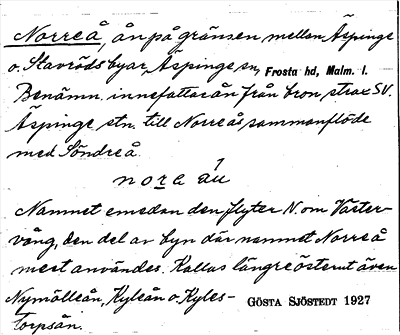 Norreå, ån på gränsen mellan Äspinge
o. Stavröds byar, Äspinge sn, Frosta hd, Malm. l.
Benämn. innefattar ån från bron strax SV.
Äspinge stn. till Norreås sammanflöde
med Söndreå.
nore åu
Namnet emedan den flyter N. om Väster-
vång, den del av byn där namnet Norreå
mest användes. Kallas längre österut även
Nymölleån, Kyleån o. Kyles-
torpsån.
GÖSTA SJÖSTEDT 1927